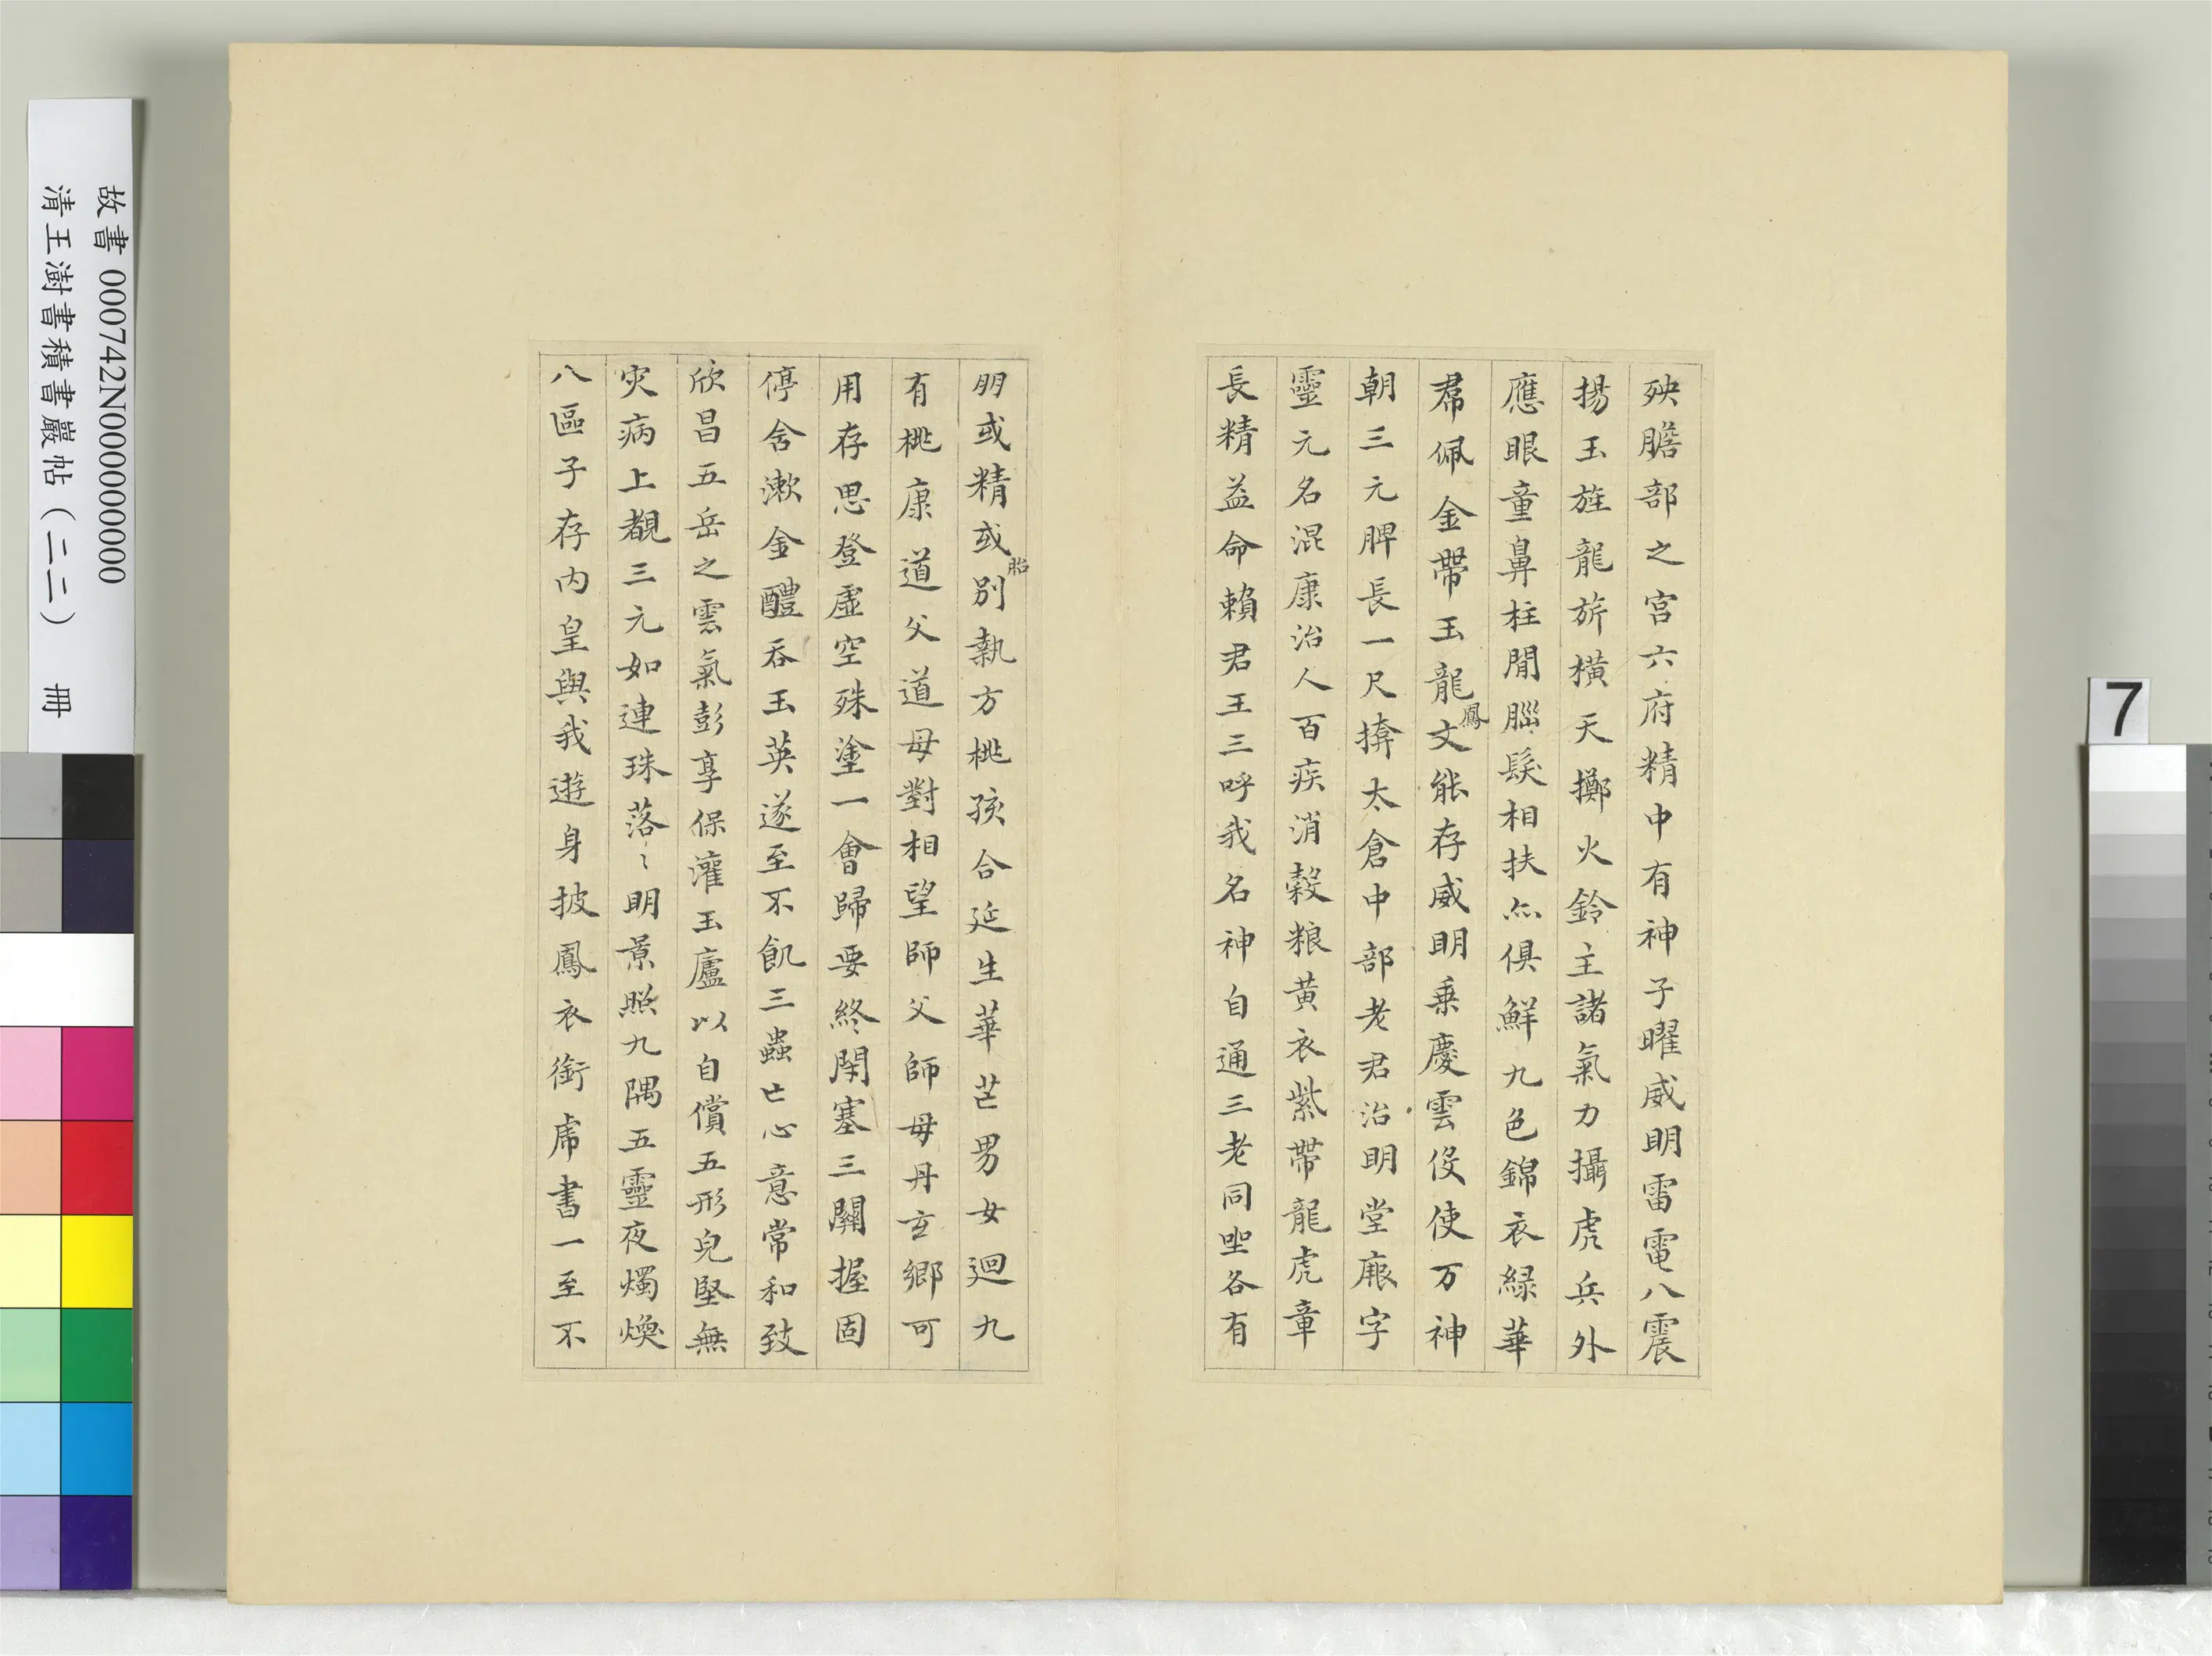 殃膽部之宫六府精中有神子曜威明雷電八震
揚玉旌龍旂橫天擲火鈴主諸氣力攝虎兵外
應眼童鼻柱間腦髮相扶亦俱鮮九色錦衣緑華
帬佩金帶玉龍文能存威明乗慶雲役使万神
鳳
朝三元脾長一尺揜太倉中部老君治明堂厫字
靈元名混康治人百疾消穀粮黄衣紫帶龍虎章
長精益命賴君王三呼我名神自通三老同坐各有
朋或精或別執方桃孩合延生華芒男女迴九
胎
有桃康道父道母對相望師父師母丹玄鄉可
用存思登虛空殊塗一會歸要終閇塞三關握固
停含漱金醴吞玉英遂至不飢三蟲亡心意常和致
欣昌五岳之雲氣彭享保灌玉廬以自償五形皃堅無
灾病上覩三元如連珠落〻明景照九隅五靈夜燭煥
八區子存内皇與我遊身披鳳衣銜虎書一至不
故書 000742N000000000
清王澍書積書巖帖（二二） 冊
7